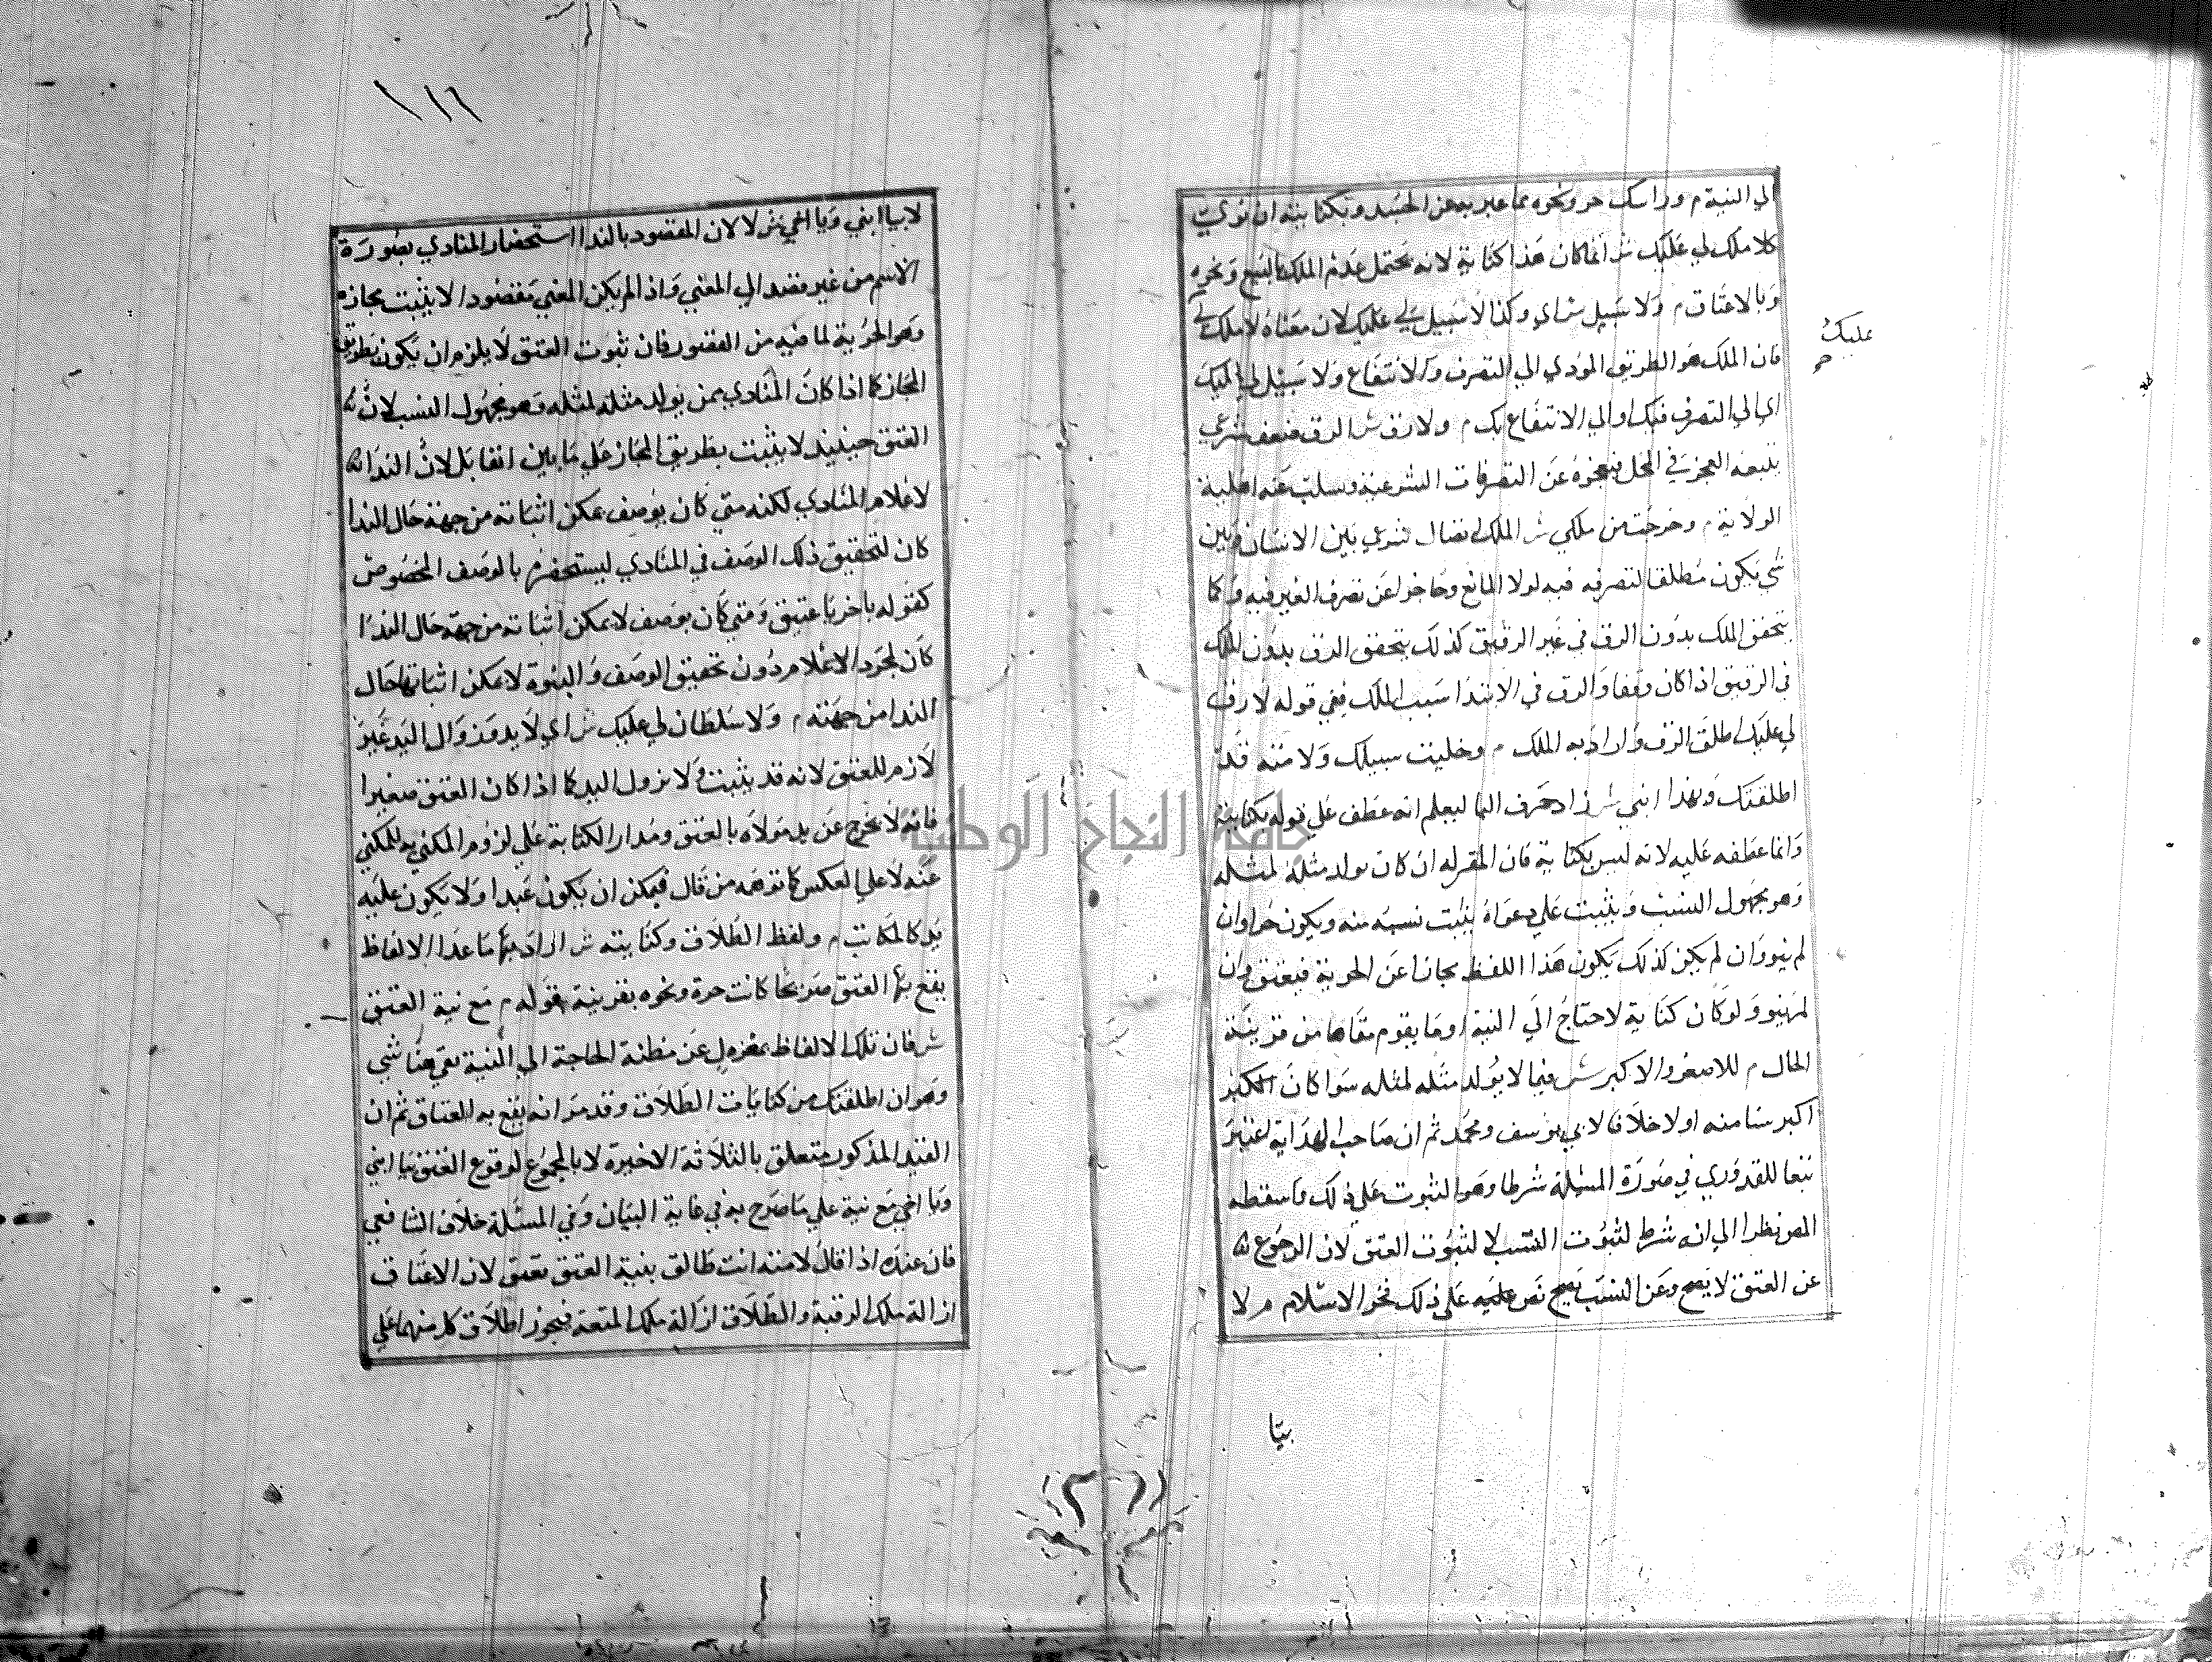 الي النية م وراسك حر ونحوه مما عبر به عن الجسد وبكنايته ان نوي
كلا ملك لي عليك ش انما كان هذا كناية لانه يحتمل عدم الملك بالبيع ونحوه
وبالاعتاق م ولا سبيل ش اي وكذا لا سبيل لي عليك لان معناه لا ملك لي
عليك
فان الملك هو الطريق المودي الي التصرف والانتفاع ولا سبيل لي اليك
اي الي التصرف فيك او الي الانتفاع بك م ولا رق ش الرق ضعف شرعي
يتبعه العجز في المحل فيعجزه عن التصرفات الشرعية ويسلب عنه اهلية
الولاية م وخرجت من ملكي ش الملك اتصال شرعي بين الانسان وبين
شي يكون مطلقا لتصرفه فيه لولا المانع وحاجزا عن تصرف الغير فيه وكما
يتحقق الملك بدون الرق في غير الرقيق كذلك يتحقق الرق بدون الملك
في الرقيق اذا كان وقفا والرق في الابتدا سبب الملك ففي قوله لا رق
لي عليك اطلق الرق واراد به الملك م وخليت سبيلك ولامته قد
اطلقتك وبهذا ابني ش زاد حرف البا ليعلم انه عطف علي قوله بكنايته
وانما عطفه عليه لانه ليس بكناية فان المقر له ان كان يولد مثله لمثله
وهو مجهول النسب ويثبت علي دعواه يثبت نسبه منه ويكون حرا وان
لم ينو وان لم يكن كذلك يكون هذا اللفظ مجازا عن الحرية فيعتق وان
لم ينو ولو كان كناية لاحتاج الي النية او ما يقوم مقامها من قرينة
الحال م للاصغر والاكبر ش فيما لا يولد مثله لمثله سوا كان الكبير
اكبر سنا منه او لا خلافا لابي يوسف ومحمد ثم ان صاحب الهداية اعتبر
تبعا للقدوري في صورة المسئلة شرطا وهو الثبوت علي ذلك واسقطه
المص نظرا الي انه شرط لثبوت النسب لا لثبوت العتق لان الرجوع
عن العتق لا يصح وعن النسب يصح نص عليه علي ذلك فخر الاسلام م لا
بيا
١١٦
لا بيا ابني ويا اخي ش لا لان المقصود بالندا استحضار المنادي بصورة
الاسم من غير قصد الي المعني واذا لم يكن المعني مقصودا لا يثبت مجازه
وهو الحرية لما فيه من القصور فان ثبوت العتق لا يلزم ان يكون بطريق
المجاز كما اذا كان المنادي بمن يولد مثله لمثله وهو مجهول النسب لان
العتق حينيذ لا يثبت بطريق المجاز علي ما بين انفا بل لان الندا
لاعلام المنادي لكنه متي كان يوصف يمكن اثباته من جهته حال الندا
كان لتحقيق ذلك الوصف في المنادي ليستحضره بالوصف المخصوص
كقوله يا حر يا عتيق ومتي كان بوصف لا يمكن اثباته من جهته حال الندا
كان لمجرد الاعلام دون تحقيق الوصف والبنوة لا يمكن اثباتها حال
الندا من جهته م ولا سلطان لي عليك ش اي لا يد وزوال اليد غير
لازم للعتق لانه قد يثبت ولا تزول اليد كما اذا كان العتق صغيرا
فانه لا يخرج عن يد مولاه بالعتق ومدار الكناية علي لزوم المكني به للمكني
عنه لا علي العكس كما توهمه من قال فيمكن ان يكون عبدا ولا يكون عليه
يد كالمكاتب م ولفظ الطلاق وكنايته ش اراد بها ما عدا الالفاظ
يقع بها العتق صريحا كانت حرة ونحوه بقرينة قوله م مع نية العتق
ش فان تلك الالفاظ بمعزل عن مظنة الحاجة الي النية بقي هنا شي
وهو ان اطلقتك من كنايات الطلاق وقد مر انه يقع به العتاق ثم ان
القيد المذكور متعلق بالثلاثة الاخيرة لا بالمجموع لوقوع العتق بيا ابني
ويا اخي مع نية علي ما صرح به في غاية البيان وفي المسئلة خلاف الشافعي
فان عنده اذا قال لامته انت طالق بنية العتق تعتق لان الاعتاق
ازالة ملك الرقبة والطلاق ازالة ملك المتعة فيجوز اطلاق كل منهما علي
جامعة النجاح الوطنية